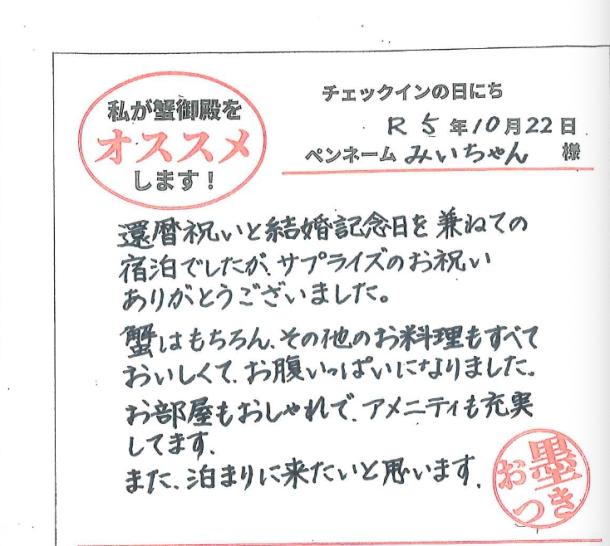 私が蟹御殿を
オススメ
します！
チェックインの日にち
R5年10月22日
ペンネーム みいちゃん 様
還暦祝いと結婚記念日を兼ねての
宿泊でしたが、サプライズのお祝い
ありがとうございました。
蟹はもちろん、その他のお料理もすべて
おいしくて、お腹いっぱいになりました。
お部屋もおしゃれで、アメニティも充実
してます、
また、泊まりに来たいと思います、
お墨
つき